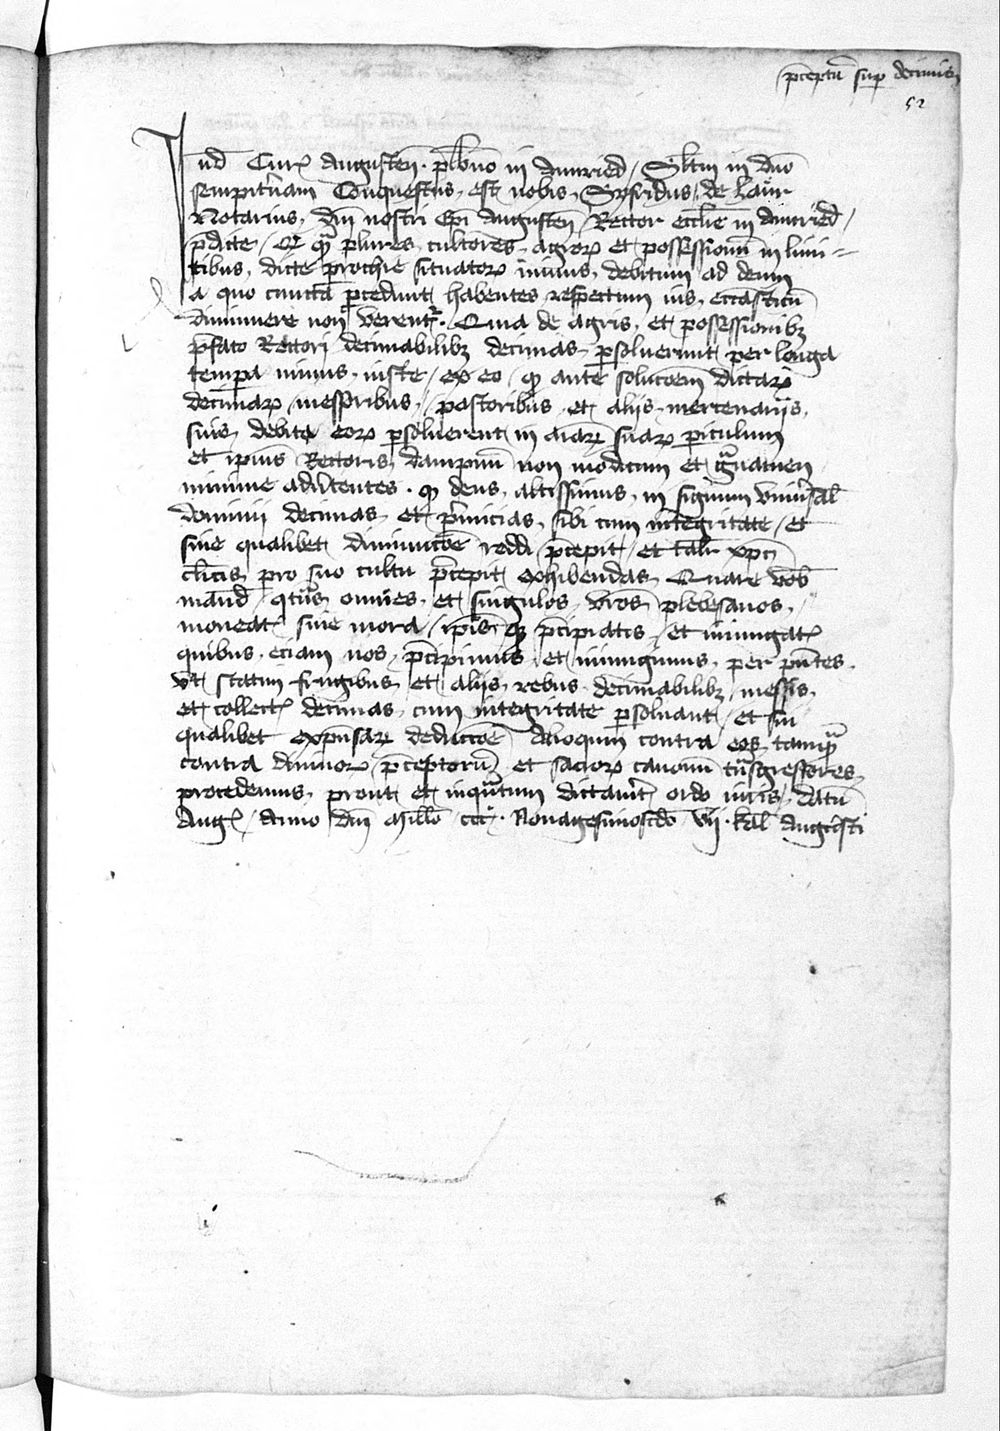 p̄ceptū sup decimis
52
Iud̄ Cur̄ Augusten̄ . pleb̄no in Amried / Sal̄tm in dn̄o
sempit̄nam Conquestus . est nobis . Syfridus . de Laẅr
Notarius . dn̄i nostri Ep̄i Augusten̄ / Rector eccl̄ie in Amried /
p̄dicte / Qꝫ qm̄ plures . cultores . agroꝝ et possessionū in limi=
tibus . dicte prochie situatoꝝ minus . debitum ad deum
a quo cuncta p̄cedunt habentes respectum ius . eccl̄asticū
diminuere non verent̄ . Quia de agris . et possessionibꝫ
p̄fato Rectori decimabilibꝫ decimas ꝑsoluerunt per longa
tempa minus . iuste / ex eo / qꝫ ante soluco̅em dictaꝝ
decimaꝝ messoribus . pastoribus . et alijs mercenarijs .
suis debita eoꝝ ꝑsoluerent in aīaꝝ suaꝝ ꝑiculum
et ipius Rectoris dampnum non modicum et gͣuamen
minime adu̅tentes . qꝫ deus . altissimus . in signum vniu̅sal̄
dominij decimas et p̄micias . sibi cum integritate / et
sine qualibet diminuco̅e reddi p̄cepit / et tal̄r xp̄i
cl̄icis pro suo cultu p̄cepit exhibendas Quare vob̄
mand̄ . qtͥus omnes . et singulos vr̄os plebesanos .
moneat̄ sine mora / ip̄is qꝫ p̄cipiatis et iniungat̄
quibus . eciam nos p̄cipimus et iniungimus . per pn̄tes .
vt statim frugibus et alijs rebus decimabilibꝫ messis .
et collect̄ decimas cum integritate ꝑsoluant / et sin̄
qualibet expensaꝝ deducco̅e Alioquin contra eos tamqͣ
contra diuinoꝝ p̄ceptorū et sacroꝝ canonū tͣnsgressores
procedemus . prout et inqͣntum dictau̅it ordo iuris / datū
Aug̅ / Anno dn̄i Mill̄o ccc̊ . Nonagesimosc̄do vij . kal̄ Augusti